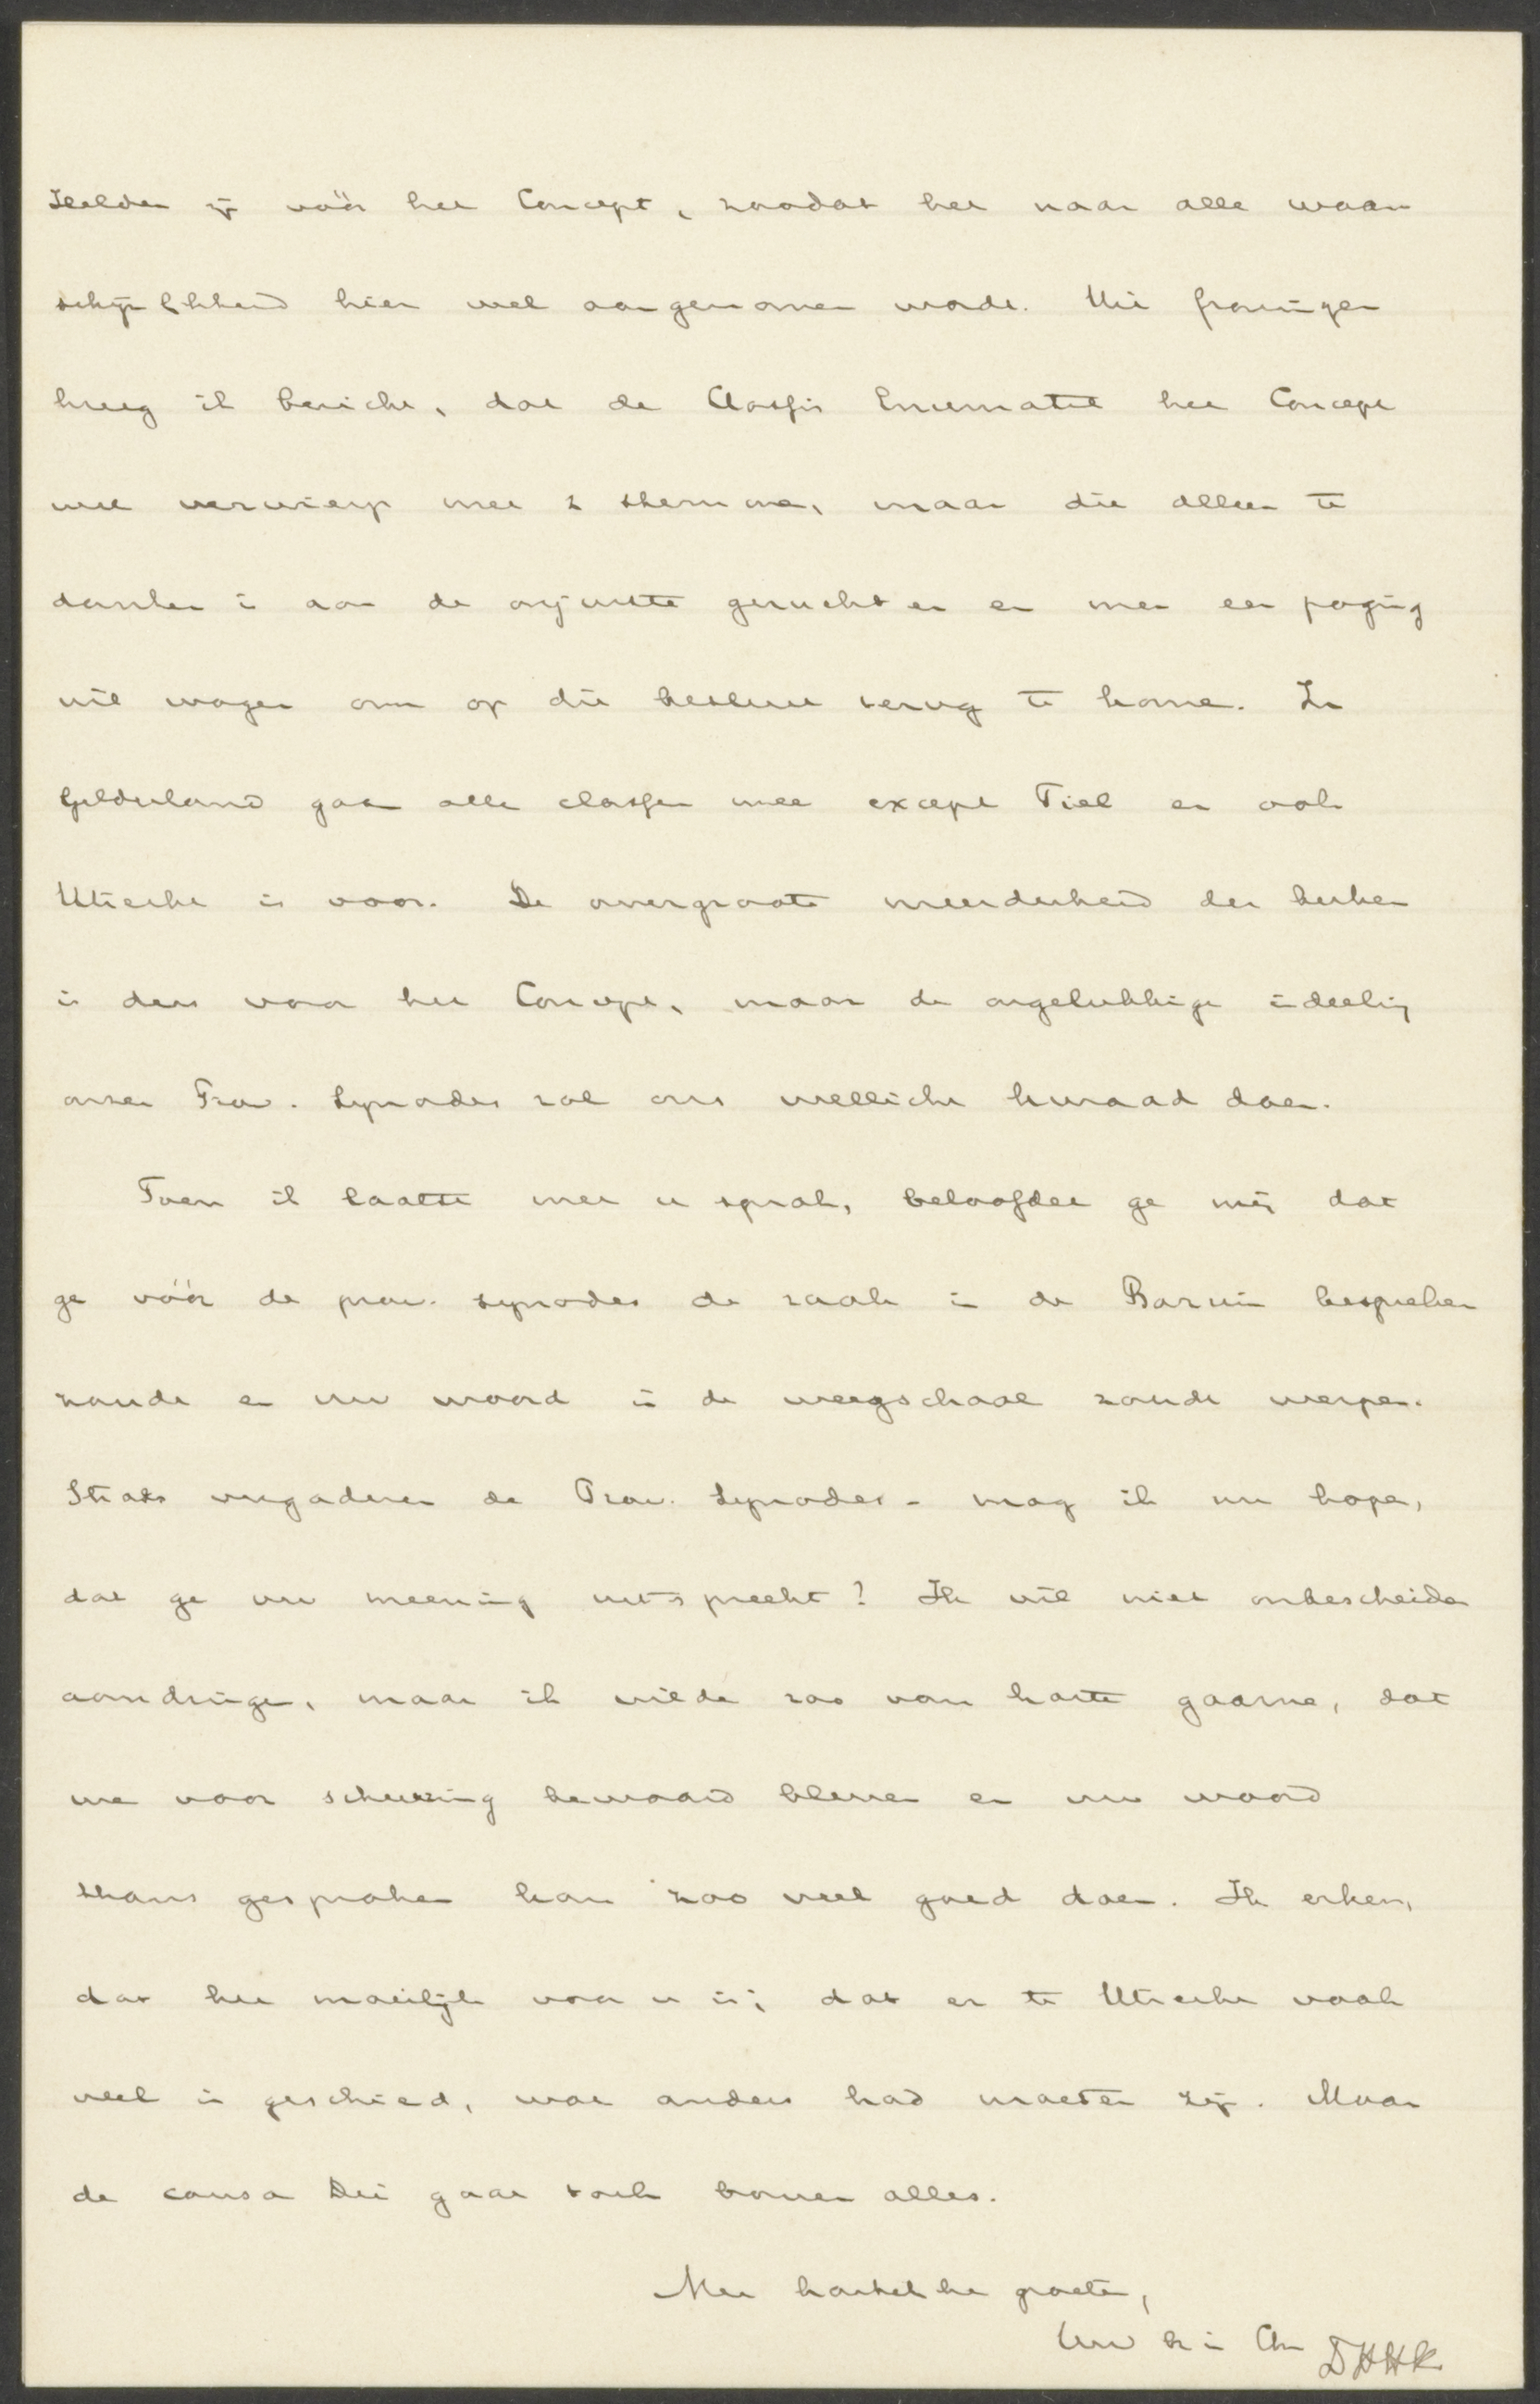 Helder zijn vóór het Concept, zoodat het naar alle waar
schijnlijkheid hier wel aangenomen wordt. Uit Groningen
kreeg ik bericht, dat de Classis Enumatil het Concept
wel verwierp met 2 stemmen, maar dit alleen te
danken is aan de onjuiste geruchten en men een poging
wil wagen om op dit besluit terug te komen. In
Gelderland gaan alle classen mee except Tiel en ook
Utrecht is voor. De overgroote meerderheid der kerken
is dus voor het Concept, maar de ongelukkige indeeling
onzer Prov. Synodes zal ons wellicht kwaad doen.
Toen ik laatst met u sprak, beloofdet ge mij dat
ge vóór de prov. synodes de zaak in de Bazuin bespreken
zoudt en uw woord in de weegschaal zoudt werpen.
Straks vergaderen de Prov. Synodes - mag ik nu hopen,
dat ge uw meening uitspreekt? Ik wil niet onbescheiden
aandringen, maar ik wilde zoo van harte gaarne, dat
we voor scheuring bewaard bleven en uw woord
thans gesproken kan zoo veel goed doen. Ik erken,
dat het moeilijk voor u is; dat er te Utrecht vaak
veel is geschied, wat anders had moeten zijn. Maar
de causa Dei gaat toch boven alles.
Met hartelijke groeten,
Uw br in Chr DHHK